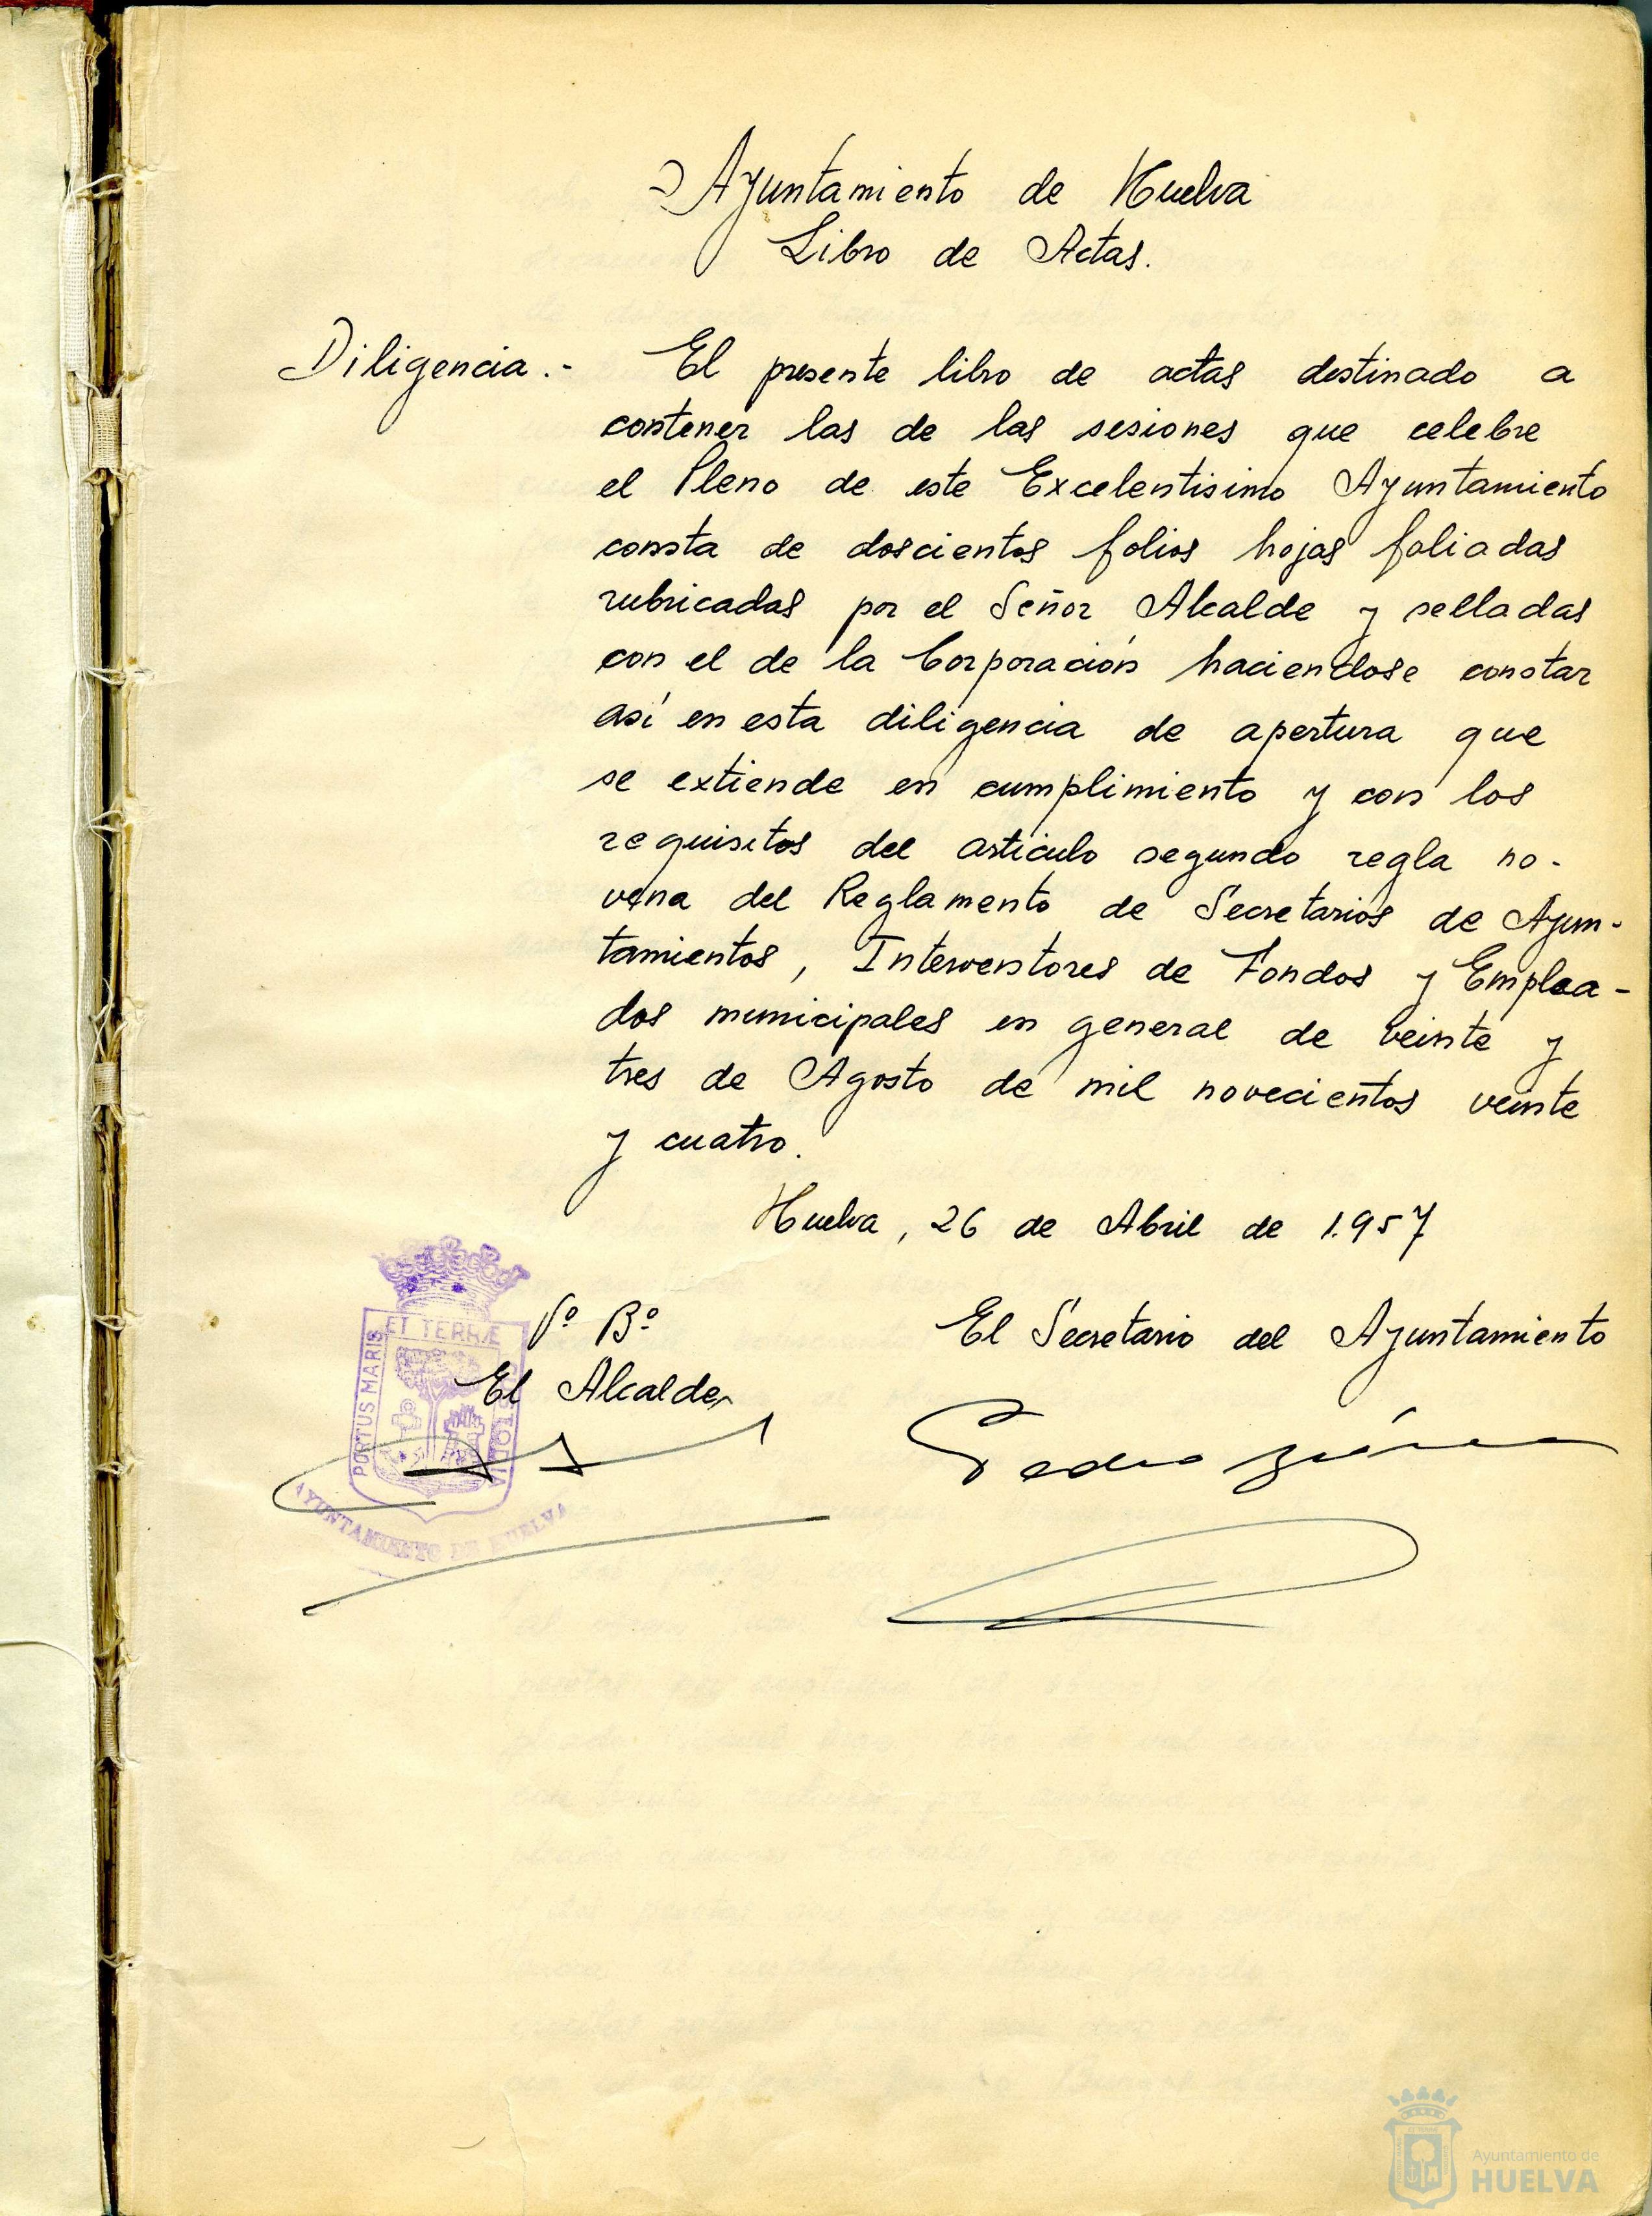 Ayuntamiento de Huelva
Libro de Actas.
Diligencia.- El presente libro de actas destinado a
contener las de las sesiones que celebre
el Pleno de este Excelentisimo Ayuntamiento
consta de doscientos folios hojas foliadas
rubricadas por el Señor Alcalde y selladas
con el de la Corporación haciendose constar
así en esta diligencia de apertura que
se extiende en cumplimiento y con los
requisitos del articulo segundo regla no-
vena del Reglamento de Secretarios de Ayun-
tamientos, Interventores de Fondos y Emplea-
dos municipales en general de veinte y
tres de Agosto de mil novecientos veinte
y cuatro.
Huelva, 26 de Abril de 1.957
Vº Bº
El Alcalde,
El Secretario del Ayuntamiento
PORTUS MARIS
ET TERRÆ
CUSTODIA
AYUNTAMIENTO DE HUELVA
Pedro
Ayuntamiento de
HUELVA